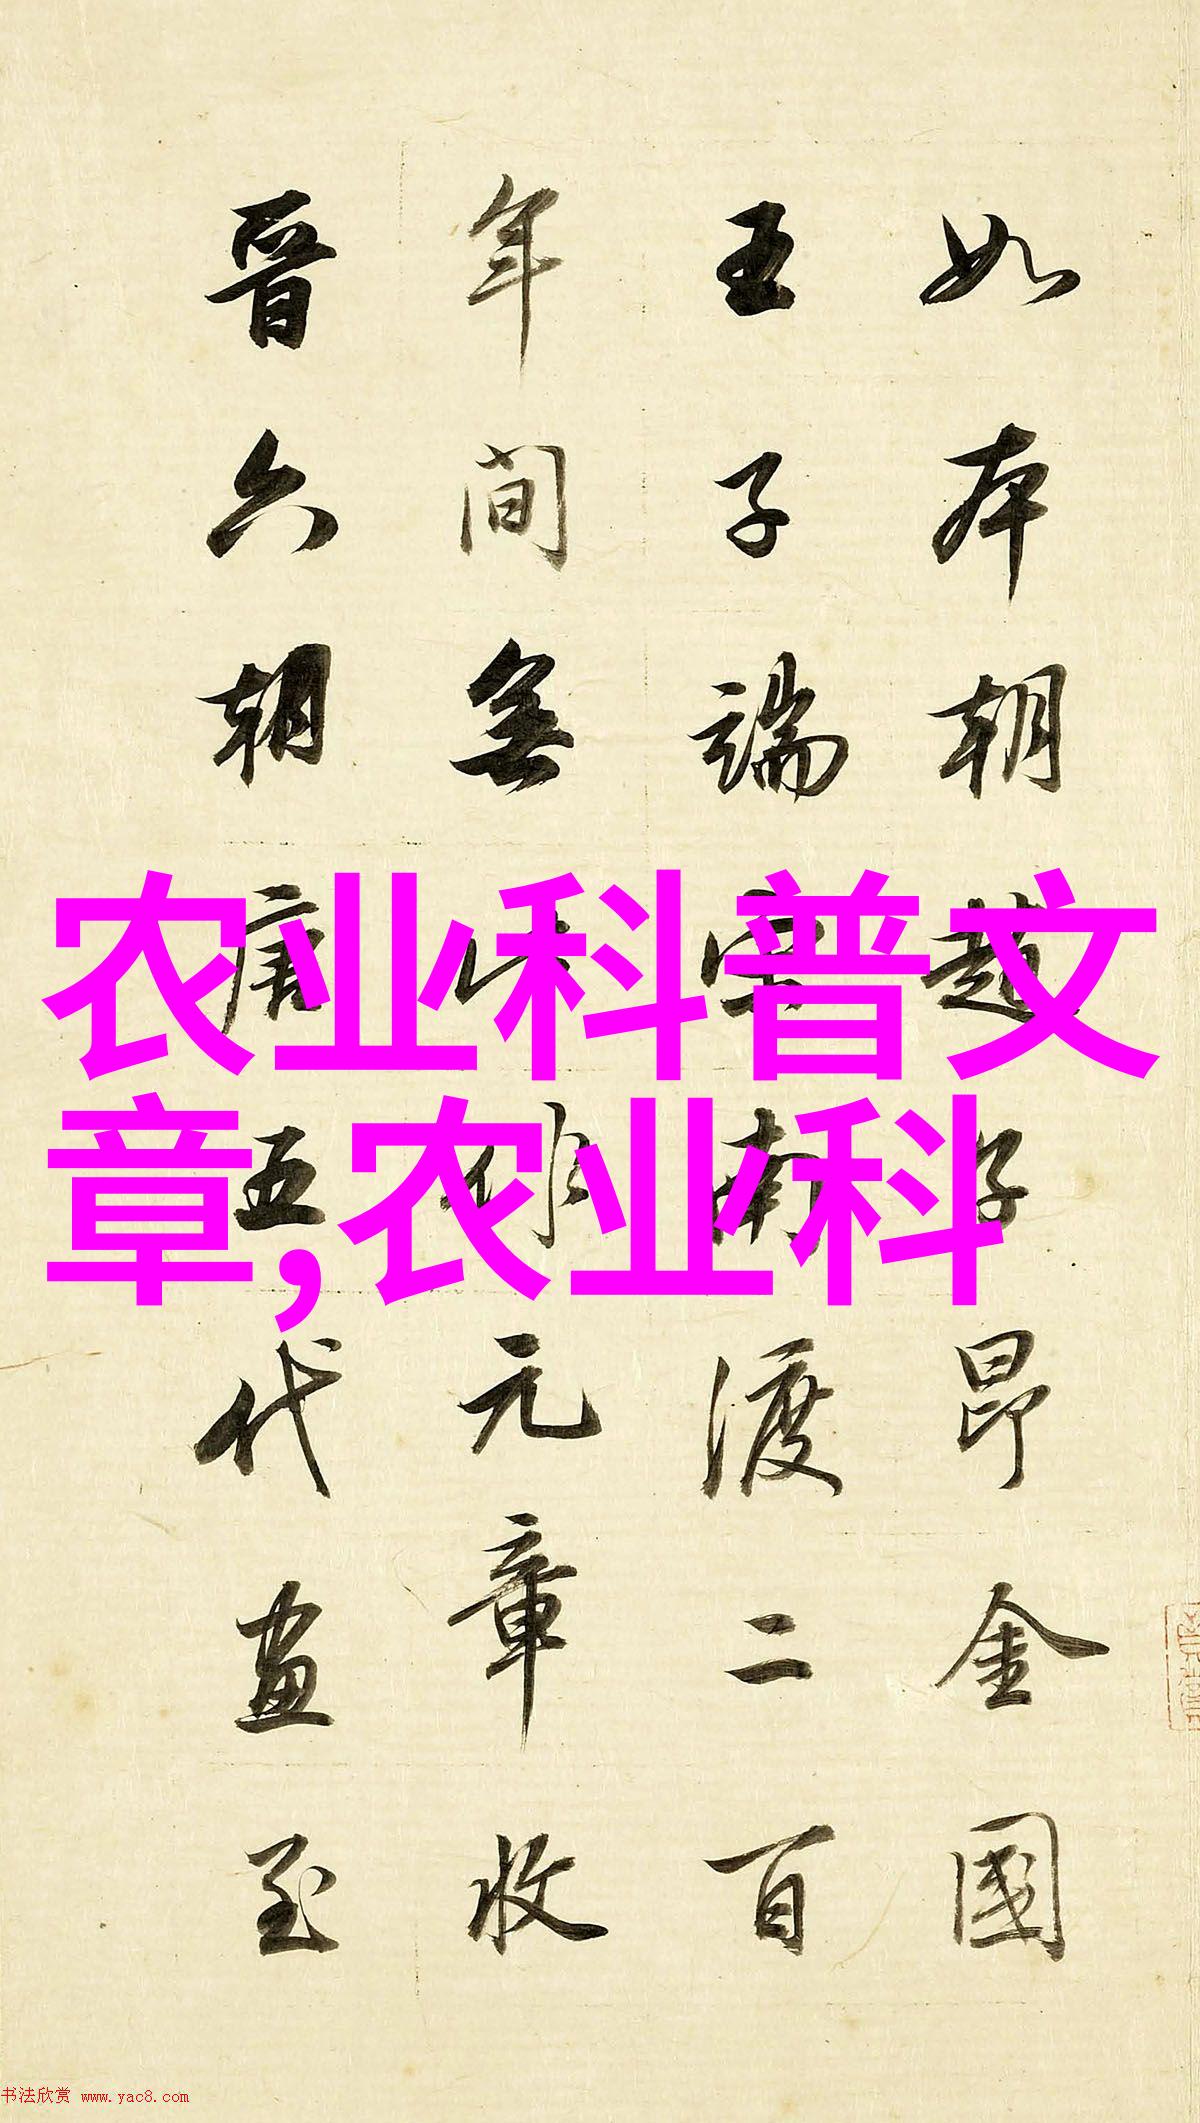 如本朝趙子昂金國
王子端宋南渡二百
年間無此元章收
晉六朝唐五代畫至
农业科普文
章,农业科
书法欣赏 www.yac8.com